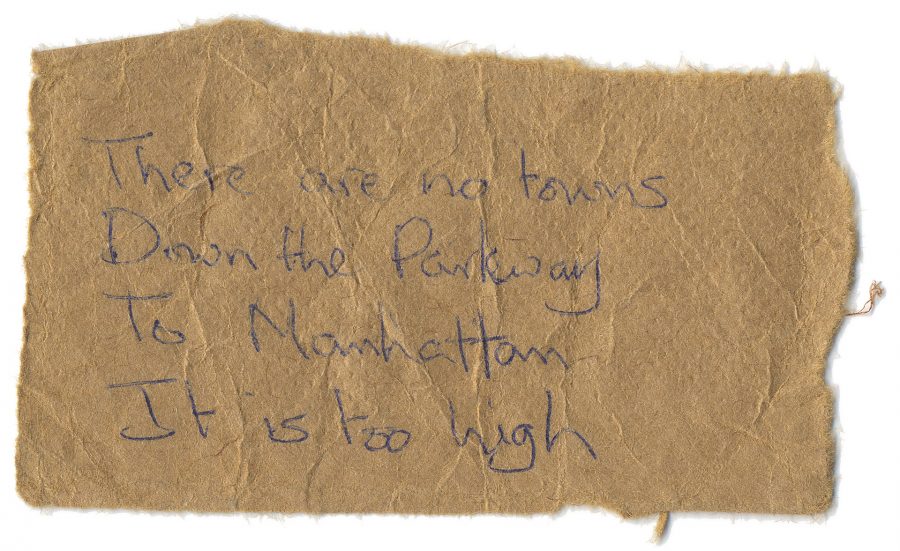 There are no towns
Down the Parkway
To Manhattan
It is too high